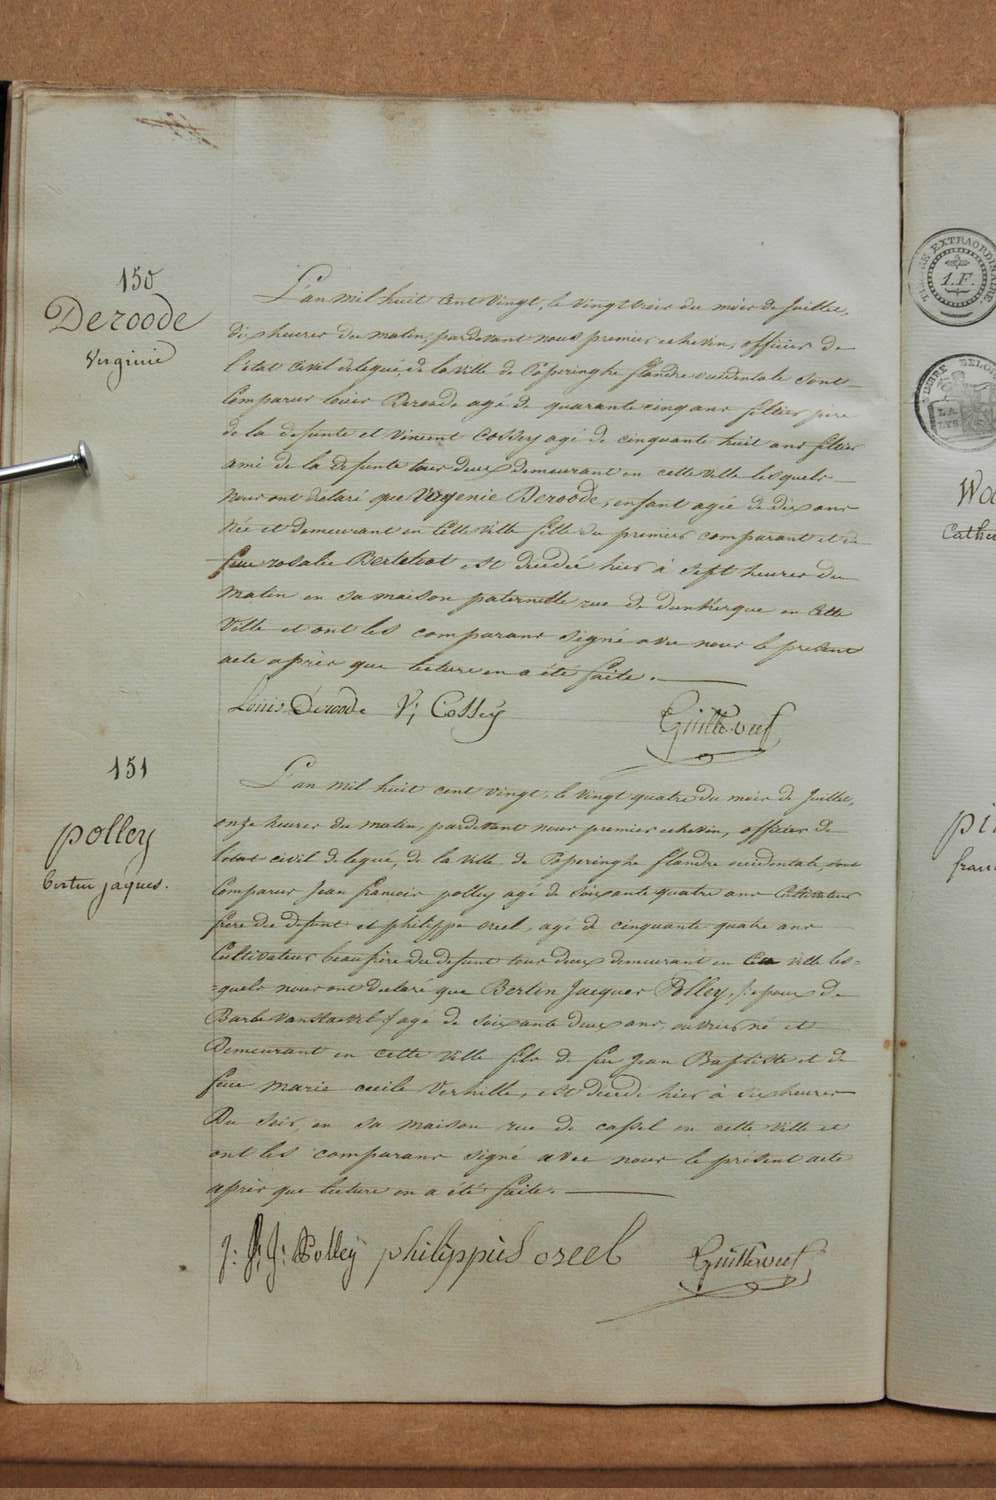 150
Deroode
Virginie
L'an mil huit cent vingt, le vingt trois du mois de Juillet,
dix heures du matin, pardevant nous premier echevin, officier de
l'etat civil delegué, de la ville de Poperinghe flandre occidentale sont
Comparus louis Deroode agé de quarante cinq ans fillier pere
de la defunte et Vincent Cossey agé de cinquante huit ans fillier
ami de la defunte tous deux demeurant en cette ville lesquels
nous ont declaré que Virgenie Deroode, enfant agée de dix ans
Née et demeurant en Cette ville fille du premier comparant et de
feue rosalie Berteloot est decedée hier à sept heures du
Matin en sa maison paternelle rue de dunkerque en Cette
Ville et ont les comparans signé avec nous le present
acte après que lecture en a été faite.
Louis Deroode V; Cossey
151
polley
bertin jaques.
L'an mil huit cent vingt, le vingt quatre du mois de Juillet,
onze heures du matin, pardevant nous premier echevin, officier de
l'etat civil delegué, de la ville de Poperinghe flandre occidentale, sont
Comparus Jean francois polley agé de soixante quatre ans Cultivateur
frere du defunt et philippe oreel, agé de cinquante quatre ans
Cultivateur beaufrere du defunt tous deux demeurant en ville les=
=quels nous ont declaré que Bertin Jacques Polley, /: epoux de
Barbe :/ agé de Soixante deux ans, ouvrier né et
Demeurant en cette ville fils de feu Jean Baptiste et de
feue Marie cecile Verhille, est decedé hier à six heures
Du soir, en sa maison rue de cassel en cette ville et
ont les comparans signé avec nous le présent acte
après que lecture en a été faite.
j: f: j: Polleÿ philippus oreel
TIMBRE EXTRAORDINAIRE
1.F.
LA
LYS
Catherine